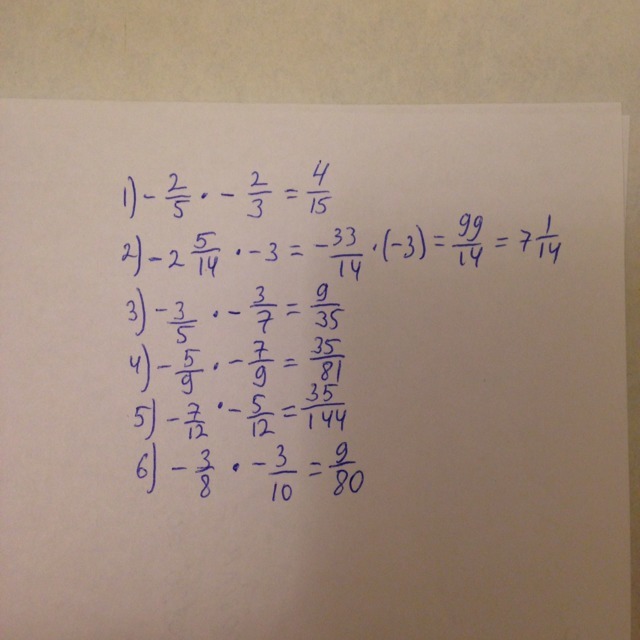 1) - 2/5 · - 2/3 = 4/15
2) - 2 5/14 · - 3 = - 33/14 · (-3) = 99/14 = 7 1/14
3) - 3/5 · - 3/7 = 9/35
4) - 5/9 · - 7/9 = 35/81
5) - 7/12 · - 5/12 = 35/144
6) - 3/8 · - 3/10 = 9/80